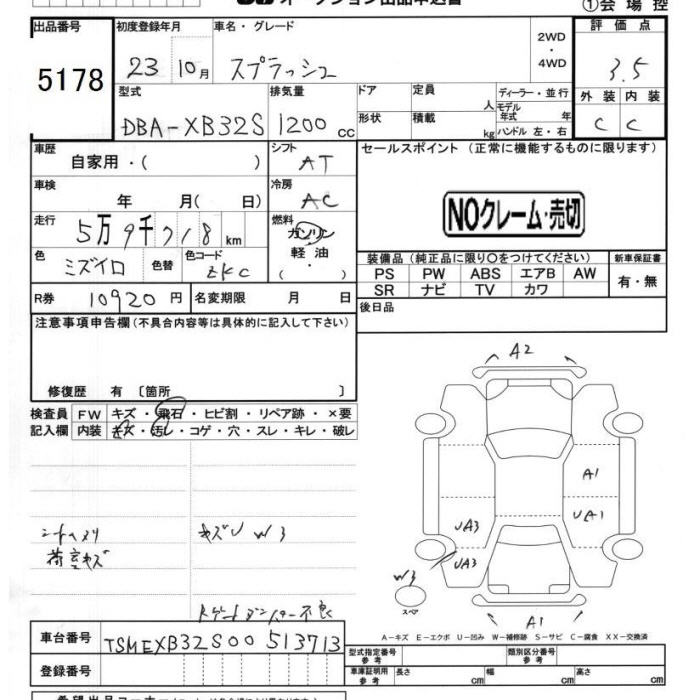 ①会場控
出品番号 初度登録年月 車名・グレード 2WD・4WD 評価点
5178 23 10月 スプラッシュ 3.5
型式 排気量 ドア 定員 人 ディーラー・並行 外装 内装
DBA-XB32S 1200cc 形状 積載 kg モデル年式 年 ハンドル 左・右 C C
車歴 自家用・( ) シフト AT セールスポイント (正常に機能するものに限ります)
車検 年 月( 日) 冷房 AC
NOクレーム・売切
走行 5万9千718km 燃料 ガソリン 軽油・( )
色 ミズイロ 色替 色コード ZKC
装備品 (純正品に限り○をつけてください) 新車保証書
PS PW ABS エアB AW 有・無
SR ナビ TV カワ
R券 10920円 名変期限 月 日 後日品
注意事項申告欄(不具合内容等は具体的に記入して下さい)
修復歴 有 〔箇所 〕
検査員 FW キズ・飛石・ヒビ割・リペア跡・×要
記入欄 内装 キズ・汚レ・コゲ・穴・スレ・キレ・破レ
A2
A1
UA1
UA3
UA3
W3
スペア
A1
シートヘタリ
荷室キズ
W3
A-キズ E-エクボ U-凹み W-補修跡 S-サビ C-腐食 XX-交換済
車台番号 TSMEXB32S00513713
型式指定番号 参考 類別区分番号 参考
登録番号 車庫証明用 参考 長さ cm 幅 cm 高さ cm